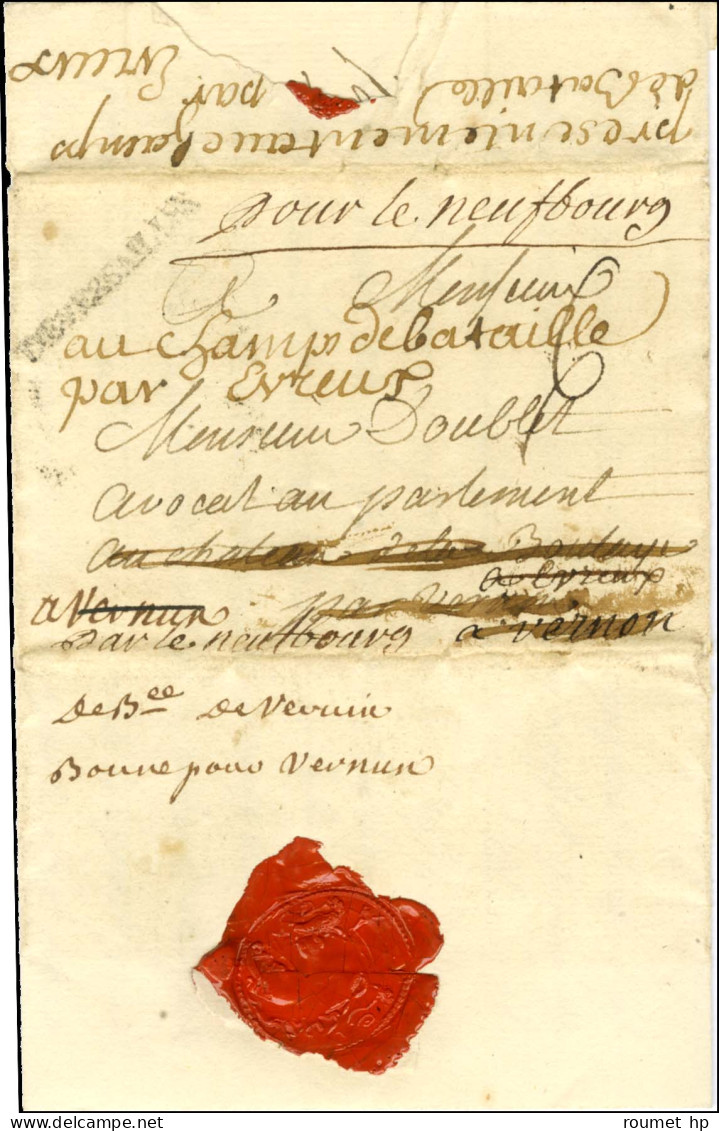 presentement au champ
de Bataille
par Evreux
pour le neufbourg
DE VERSAILLES
A Monsieur
au champs de bataille
par Evreux
6
Monsieur Doublet
avocat au parlement
au chateau de la Boulaye
a Evreux
a Vernun par
par le neufbourg a vernon
de Bee de Vernuin
Bonne pour Vernun
roumet hp